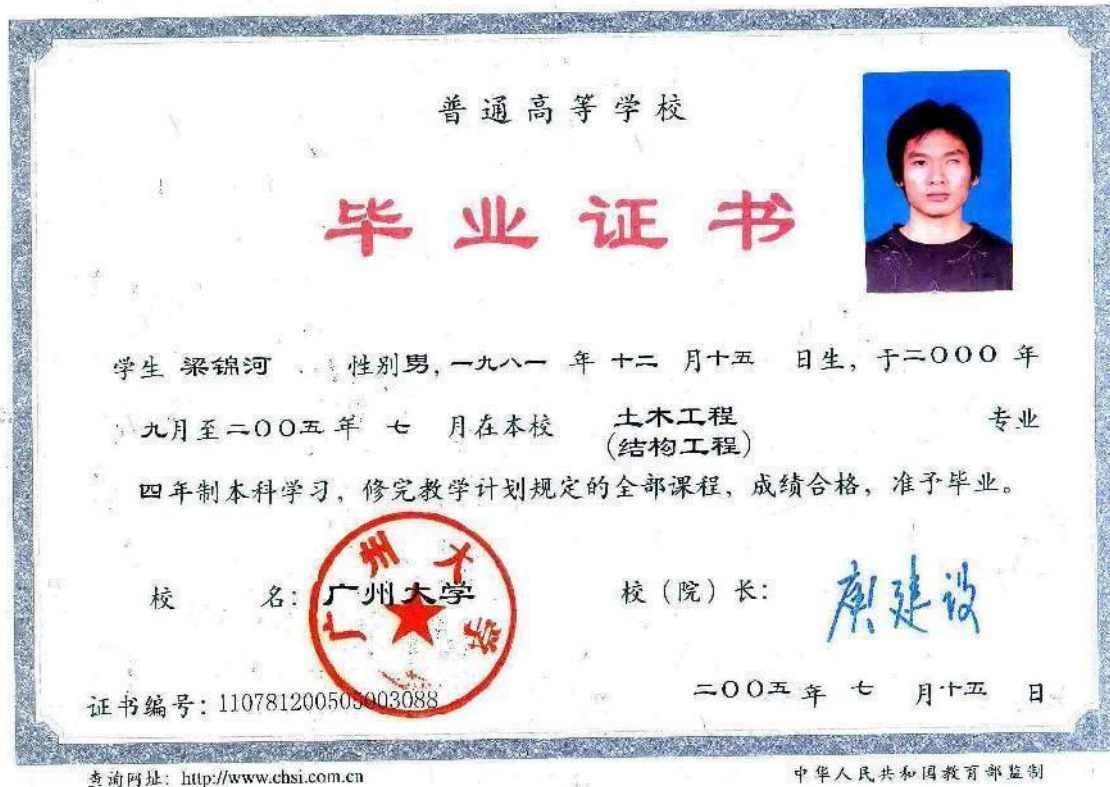 普通高等学校
毕业证书
学生 梁锦河 性别男, 一九八一 年 十二 月十五 日生, 于二〇〇〇 年
九月至二〇〇五年 七 月在本校 土木工程 专业
(结构工程)
四年制本科学习, 修完教学计划规定的全部课程, 成绩合格, 准予毕业。
校 名: 广州大学 校(院)长: 庾建设
广州大学
证书编号: 110781200505003088 二〇〇五 年 七 月十五 日
查询网址: http://www.chsi.com.cn 中华人民共和国教育部监制